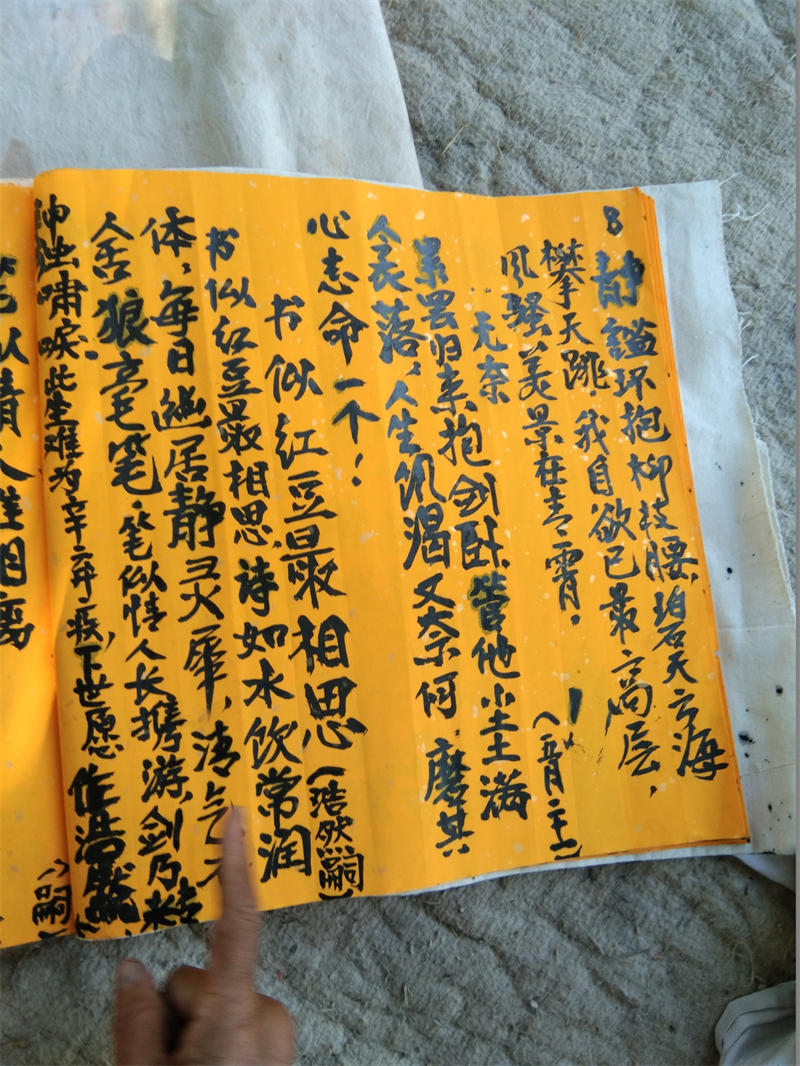 8 静谧环抱柳枝腰，碧天云海
攀天跳 我自欲已最高层，
风骚美景在青霄。
（五月二十一）
无奈
累罢归来抱剑卧，管他尘土满
人衰落，人生饥渴又奈何 磨其
心志命一个！
书似红豆最相思（浩然嗣）
书似红豆最相思，诗如水饮常润
体，每日幽居静灵犀，清气
人舌狼毫笔，笔似情人长携游，剑乃
神 啸唳，此生难为 疾，下世愿作浩然
（嗣）
笔以情人难相离